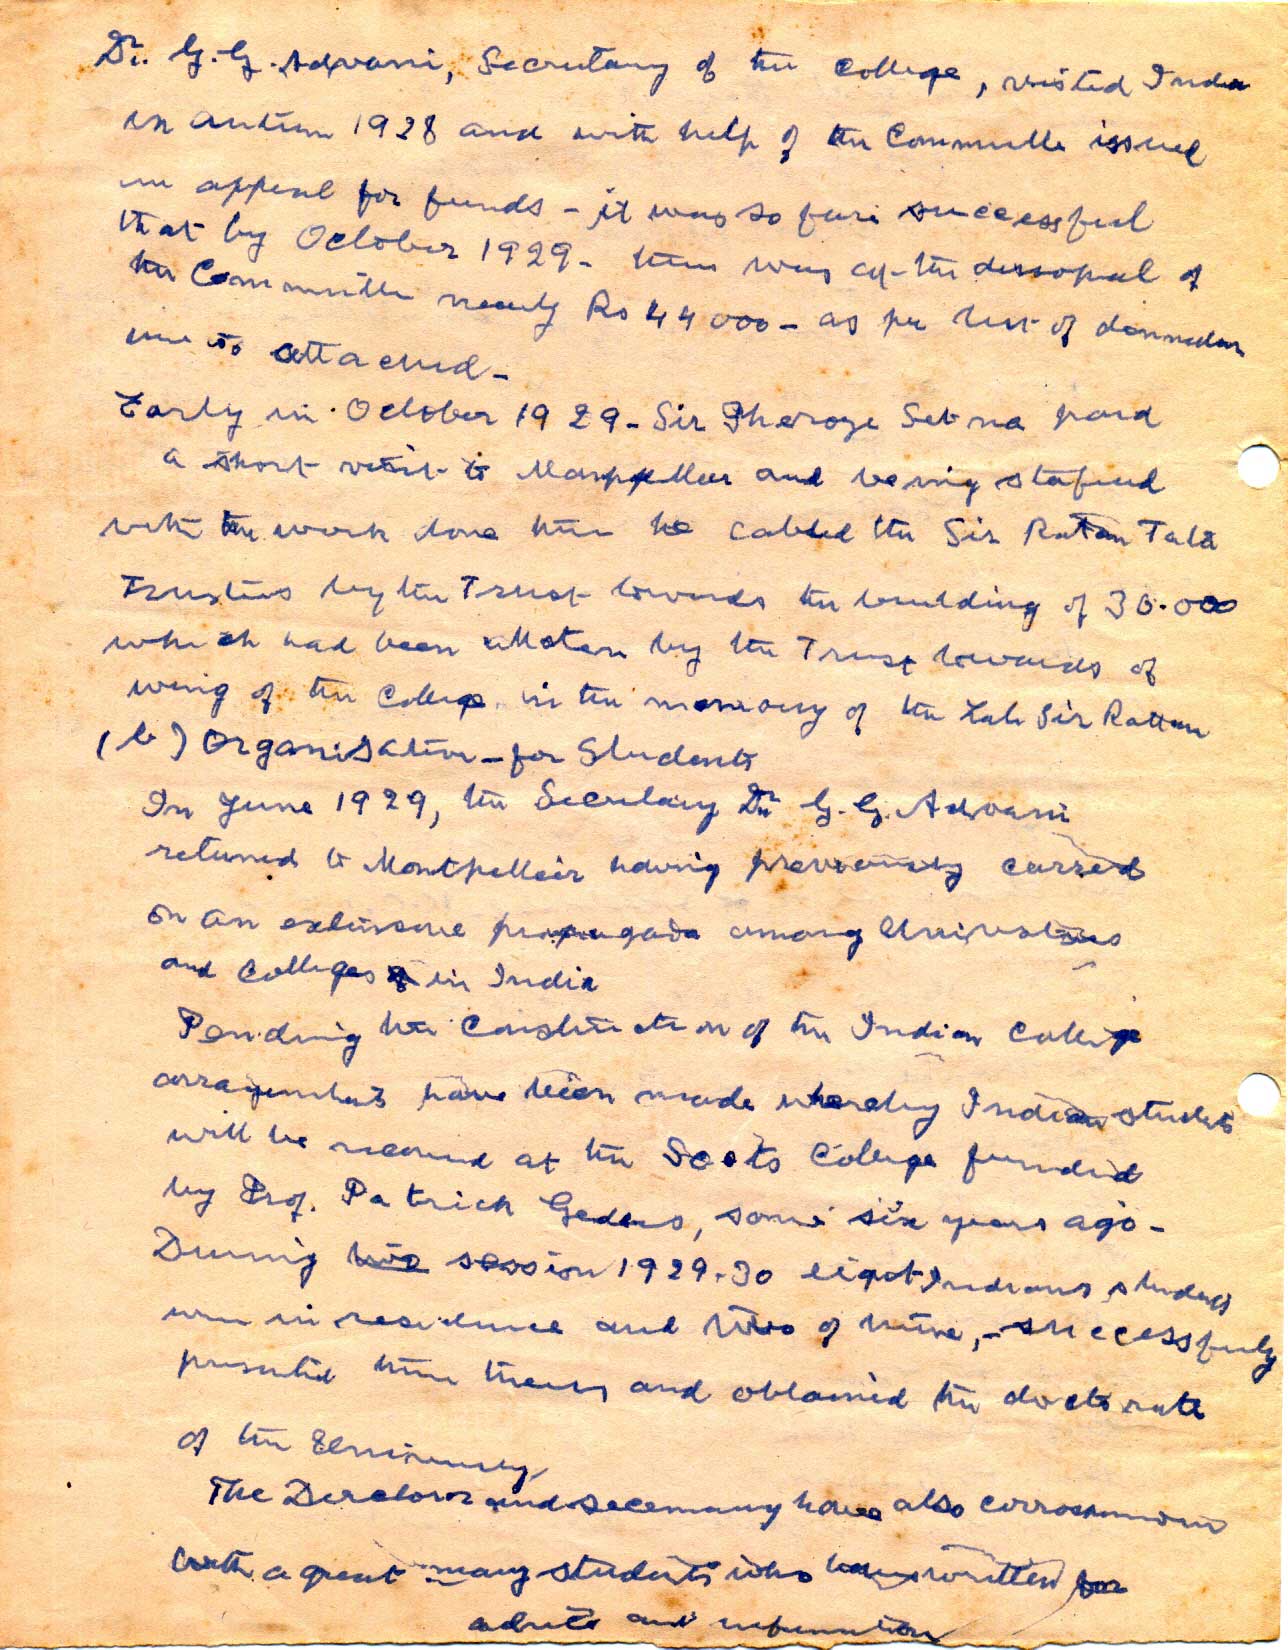 Dr. G. G. Advani, Secretary of the College, visited India
in autumn 1928 and with help of the Committe issued
an appeal for funds - it was so far successful
that by October 1929 - there was at the disposal of
the Committe nearly Rs 44000 - as per list of
attached -
Early in October 1929 - Sir Pheroze Setna paid
a short visit to and being
with the work done he cabled the Sir Ratan Tata
Trusties by the Trust towards the building of 30.000
which had been by the Trust towards of
wing of the College in the memory of the Late Sir Rattan
(b) Organisation - for Students
In June 1929, the Secretary Dr G. G. Advani
returned to Montpelleir having previously carred
on an extensive among
and Colleges in India
Pending the Construction of the Indian College
have been made whereby Indian students
will be at the Scots College funded
by Prof. Patrick Geddes, some six years ago -
During two session 1929-30 Indians students
in residence and two of - successfuly
and obtained the doctorate
of the University
The and have also
with a great many students who have written for
and